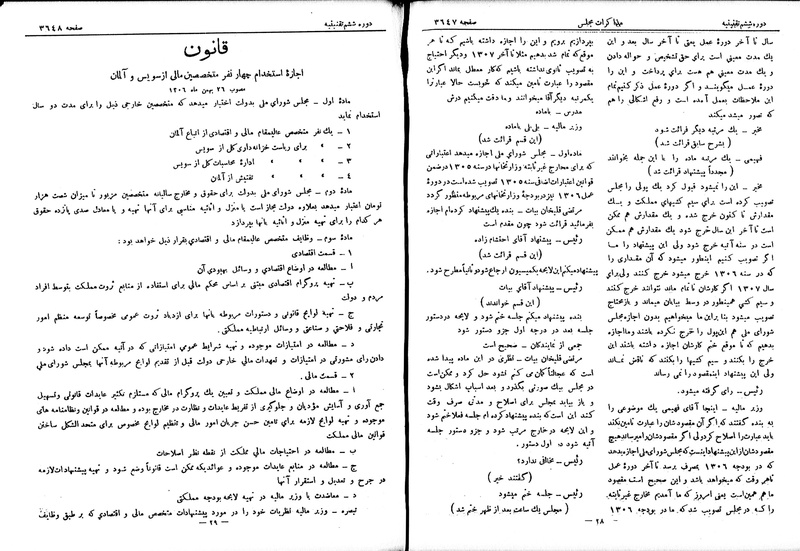 دوره ششم تقنینیه
مذاکرات مجلس
صفحه ۳۶۴۷
سال تا آخر دورهٔ عمل یعنی تا آخر سال بعد و این
یك مدت معینی است برای حق تشخیص و حواله دادن
و یك مدت معینی هم هست برای پرداخت و این را
دورهٔ عمل میگویند و اگر دورهٔ عمل ذکر کنیم تمام
این ملاحظات بعمل آمده است و رفع اشکالی را هم
که تصور میشد میکند
مخبر ــ یك مرتبه دیگر قرائت شود
(بشرح سابق قرائت شد)
فهیمی ــ یك مرتبه ماده را با این جمله بخوانند
(مجدداً پیشنهاد قرائت شد)
مخبر ــ این را نمیشود قبول کرد یك پولی را مجلس
تصویب کرده است برای سیم کشیهای مملکت و یك
مقدارش تا کنون خرج شده و یك مقدارش هم ممکن
است تا آخر این سال خرج شود یك مقدارش هم ممکن
است در سنه آتیه خرج شود ولی این پیشنهاد را ما
اگر تصویب کنیم اینطور میشود که آن مقداری را
که در سنه ۱۳۰۶ خرج میشود خرج کنند ولی برای
سال ۱۳۰۷ اگر کارشان ناتمام ماند نتوانند خرج کنند
و سیم کشی همینطور در وسط بیابان میماند و باز محتاج
تصویب میشود بنا بر این ما میخواهیم بدون اجازه مجلس
شورای ملی هم این پول را خرج نکرده باشند و ما اجازه
بدهیم که تا موقع ختم کارشان اجازه داشته باشند این
خرج را بکنند و سیم کشیها را بکنند که ناقص نماند
ولی این پیشنهاد اینمقصود را نمی رساند
رئیس ــ رأی گرفته میشود.
وزیر مالیه ــ اینجا آقای فهیمی یك موضوعی را
به بنده گفتند که اگر آن مقصودشان را عبارت تأمین نکند
باید عبارت را اصلاح کرد ولی اگر مقصودشان را میرساند هیچ
مقصودشان از این پیشنهاد اینست که مجلس شورای ملی اجازه میدهد
که در بودجه ۱۳۰۶ بمصرف برسد تا آخر دورهٔ عمل
ناهر وقت که میخواهد باشد و این صحیح است مقصود
ما هم همین است یعنی امروز که ما آمدیم مخارج غیر ثابته
را که در مجلس تصویب شد که ما در بودجه ۱۳۰۶
بپردازیم برویم و این را اجازه داشته باشیم که تا هر
موقع که تمام شد بدهیم مثلا تا آخر ۱۳۰۷ ودیگر احتیاج
به تصویب ثانوی نداشته باشیم که کار معطل بماند اگر این
مقصود را عبارت تامین میکند که خوبست حالا عبارت را
یکمرتبه دیگر آقا میخوانند و ما دقت میکنیم درش
مدرس ــ باماده
وزیر مالیه ــ بلی بلی باماده
(این قسم قرائت شد)
ماده اول ــ مجلس شورای ملی اجازه میدهد اعتباراتی
که برای مخارج غیر ثابته وزارتخانها در سنه ۱۳۰۵ در ضمن
قوانین اعتبارات اضافی سنه ۱۳۰۵ تصویب شده است در دورهٔ
عمل ۱۳۰۶ نیز در بودجهٔ وزارتخانهای مربوطه منظور گردد
مرتضی قلیخان بیات ــ بنده یك پیشنهاد کرده ام اجازه
بفرمائید قرائت شود چون مقدم است
رئیس ــ پیشنهاد آقای احتشام زاده
پیشنهاد میکنم این لایحه بکمیسیون ارجاع شود و ثانیاً مطرح شود.
رئیس ــ پیشنهاد آقای بیات
(این قسم خواندند)
بنده پیشنهاد میکنم جلسه ختم شود و لایحه در دستور
جلسه بعد در درجه اول جزو دستور شود
جمعی از نمایندگان ــ صحیح است
مرتضی قلیخان بیات ــ نظری در این ماده پیدا شده
است که عجالتاً گمان می کنم نشود حل کرد و ممکن است
در مجلس بیك صورتی بگذرد و بعد اسباب اشکال بشود
و باز بیاید مجلس برای اصلاح و مدتی صرف وقت
کنند این است که بنده پیشنهاد کرده ام جلسه فعلا ختم شود
و این لایحه در خارج مرتب شود و جزو دستور جلسه
آتیه شود در اول دستور.
رئیس ــ مخالفی ندارد؟
(گفتند خیر)
رئیس ــ جلسه ختم میشود
(مجلس یك ساعت بعد از ظهر ختم شد)
ــ ۲۸ ــ
دوره ششم تقنینیه
صفحه ۳۶۴۸
قانون
اجازهٔ استخدام چهار نفر متخصصین مالی از سویس و آلمان
مصوب ۲۶ بهمن ماه ۱۳۰۶
مادهٔ اول ــ مجلس شورای ملی بدولت اختیار میدهد که متخصصین خارجی ذیل را برای مدت دو سال
استخدام نماید
۱ ــ یك نفر متخصص عالیمقام مالی و اقتصادی از اتباع آلمان
۲ ــ » » برای ریاست خزانه داری کل از سویس
۳ ــ » » ادارهٔ محاسبات کل از سویس
۴ ــ » » تفتیش از آلمان
مادهٔ دوم ــ مجلس شورای ملی بدولت برای حقوق و مخارج سالیانه متخصصین مزبور تا میزان شصت هزار
تومان اعتبار میدهد بعلاوه دولت مجاز است با منزل و اثاثیه مناسبی برای آنها تهیه و یا معادل صدی پانزده حقوق
هر کدام را برای تهیه منزل و اثاثیه بآنها بپردازد
مادهٔ سوم ــ وظایف متخصص عالیمقام مالی و اقتصادی بقرار ذیل خواهد بود:
۱ ــ قسمت اقتصادی
ا ــ مطالعه در اوضاع اقتصادی و وسائل بهبودی آن
ب ــ تهیه پروگرام اقتصادی مبتنی بر اساس محکم مالی برای استفاده از منابع ثروت مملکت بتوسط افراد
مردم و دولت
ج ــ تهیه لوایح قانونی و دستورات مربوطه بآنها برای ازدیاد ثروت عمومی مخصوصاً توسعه منظم امور
تجارتی و فلاحتی و صناعتی و وسائل ارتباطیه مملکتی.
د ــ مطالعه در امتیازات موجوده و تهیه شرایط عمومی امتیازاتی که در آتیه ممکن است داده شود و
دادن رأی مشورتی در امتیازات و تعهدات مالی خارجی دولت قبل از تقدیم لوایح مربوطه آنها بمجلس شورای ملی
۲ ــ قسمت مالی.
ا ــ مطالعه در اوضاع مالی مملکت و تعیین یك پروگرام مالی که مستلزم تکثیر عایدات قانونی وتسهیل
جمع آوری و آسایش مؤدیان و جلوگیری از تفریط عایدات و نظارت در مخارج بوده و مطالعه در قوانین ونظامنامه های
موجوده و تهیه لوایح لازمه برای تامین حسن جریان امور مالی و تنظیم لوایح مخصوص برای متحدالشکل ساختن
قوانین مالی مملکت
ب ــ مطالعه در احتیاجات مالی مملکت از نقطه نظر اصلاحات
ج ــ مطالعه در منابع عایدات موجوده و عوائدیکه ممکن است قانوناً وضع شود و تهیه پیشنهادات لازمه
در جرح و تعدیل و استقرار آنها
د ــ معاضدت با وزیر مالیه در تهیه لایحه بودجه مملکتی
تبصره ــ وزیر مالیه نظریات خود را در مورد پیشنهادات متخصص مالی و اقتصادی که بر طبق وظایف
ــ ۲۹ ــ